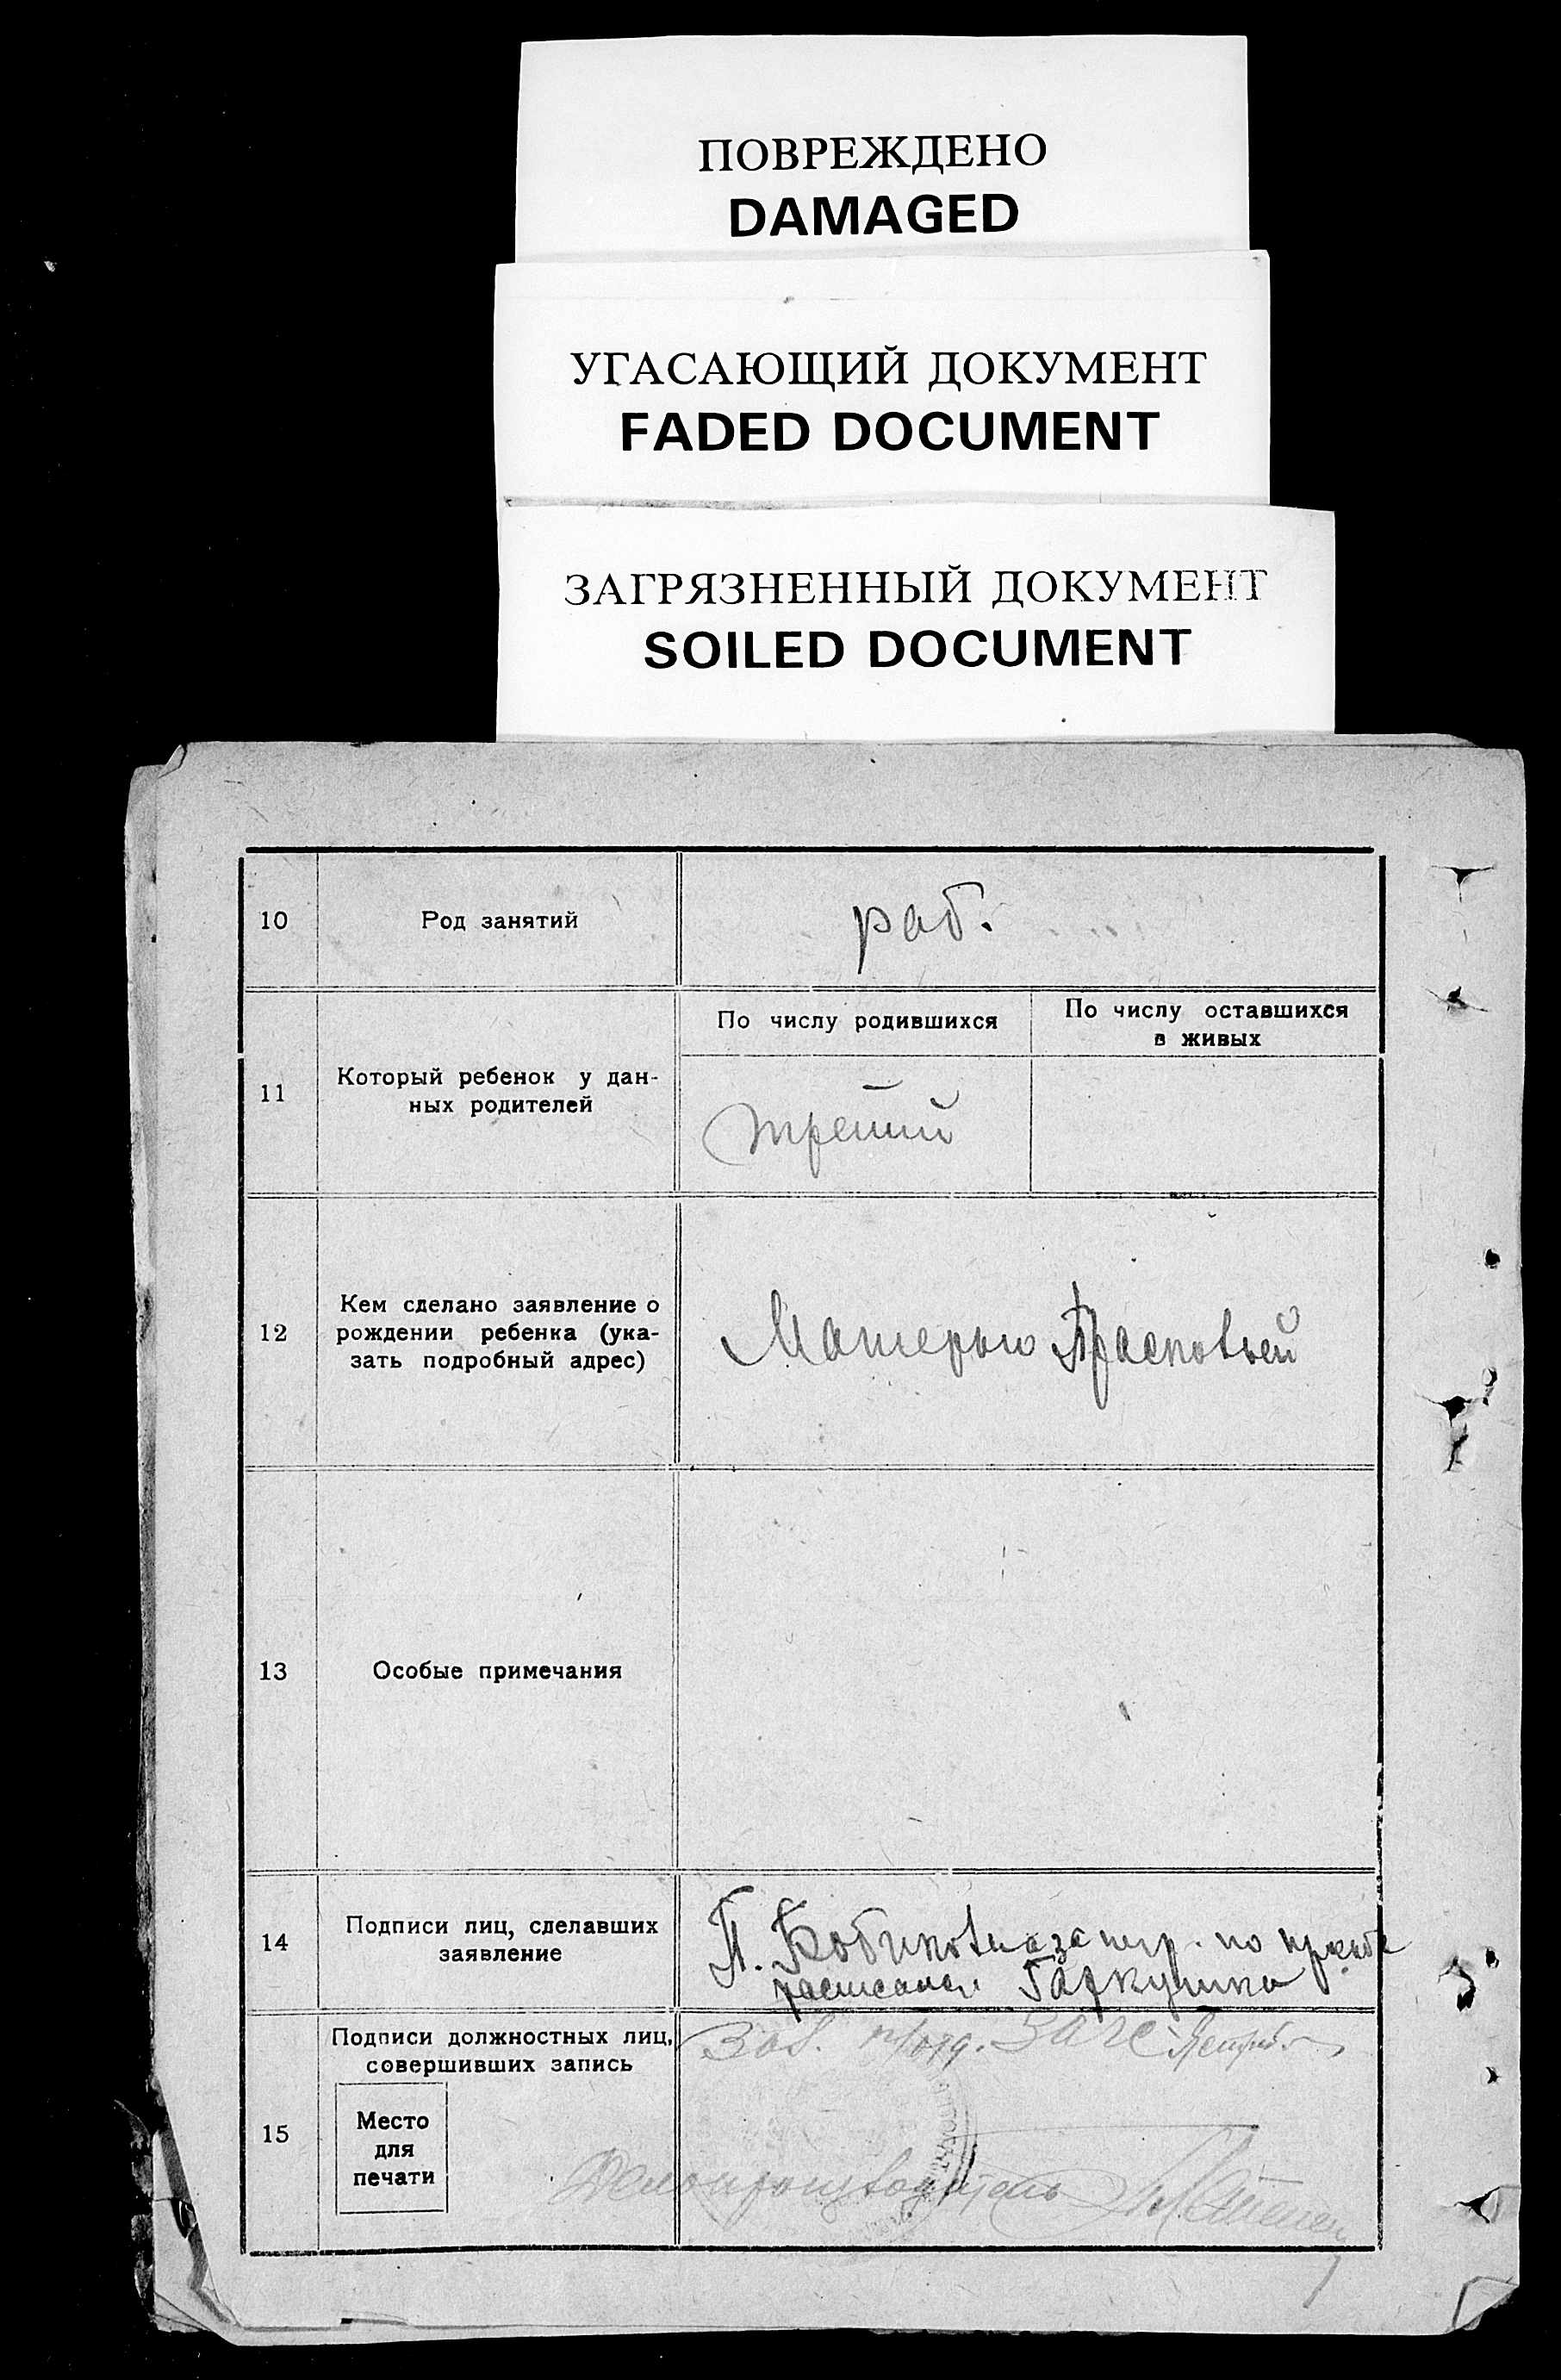 ПОВРЕЖДЕНО
DAMAGED
УГАСАЮЩИЙ ДОКУМЕНТ
FADED DOCUMENT
ЗАГРЯЗНЕННЫЙ ДОКУМЕНТ
SOILED DOCUMENT
10
Род занятий
раб.
11
Который ребенок у дан-
ных родителей
По числу родившихся
По числу оставшихся
в живых
третий
12
Кем сделано заявление о
рождении ребенка (ука-
зать подробный адрес)
Матерью Прасковьей
13
Особые примечания
14
Подписи лиц, сделавших
заявление
П. за негр. по просьбе
расписался Гаркушка
15
Подписи должностных лиц,
совершивших запись
Место
для
печати
Зав. ЗАГС
Делопроизводитель